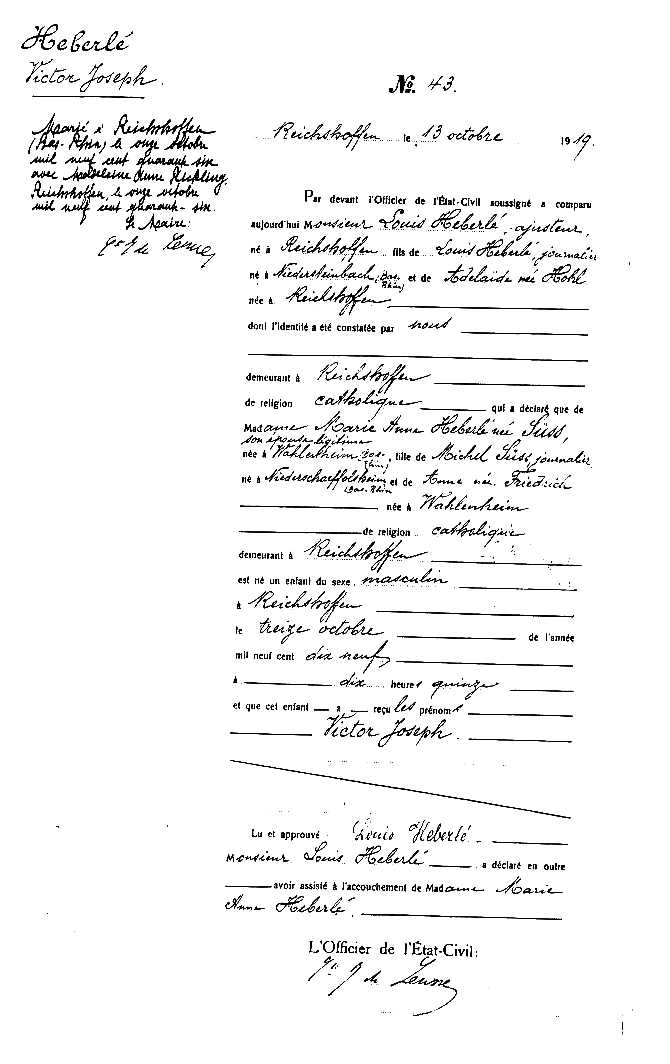 Heberlé
Victor Joseph.
Marié à Reichshoffen
(Bas-Rhin) le onze octobre
mil neuf cent quarante six
avec Madeleine Anne
Reichshoffen, le onze octobre
mil neuf cent quarante-six.
Le Maire:
de Leusse
No. 43.
Reichshoffen le 13 octobre 1919.
Par devant l'Officier de l'État-Civil soussigné a comparu
aujourd'hui Monsieur Louis Heberlé, ajusteur,
né à Reichshoffen fils de Louis Heberlé, journalier
né à Niedersteinbach, (Bas-Rhin) et de Adelaïde née Hohl
née à Reichshoffen
dont l'identité a été constatée par nous
demeurant à Reichshoffen
de religion catholique qui a déclaré que de
Madame Marie Anne Heberlé née Süss,
son épouse légitime
née à Wahlenheim, (Bas-Rhin), fille de Michel Süss, journalier
né à Niederschaeffolsheim (Bas-Rhin) et de Anne née Friedrich
née à Wahlenheim
de religion catholique
demeurant à Reichshoffen
est né un enfant du sexe masculin
à Reichshoffen
le treize octobre de l'année
mil neuf cent dix neuf,
à dix heures quinze
et que cet enfant a reçu les prénoms
Victor Joseph.
Lu et approuvé Louis Heberlé.
Monsieur Louis Heberlé a déclaré en outre
avoir assisté à l'accouchement de Madame Marie
Anne Heberlé.
L'Officier de l'État-Civil:
de Leusse